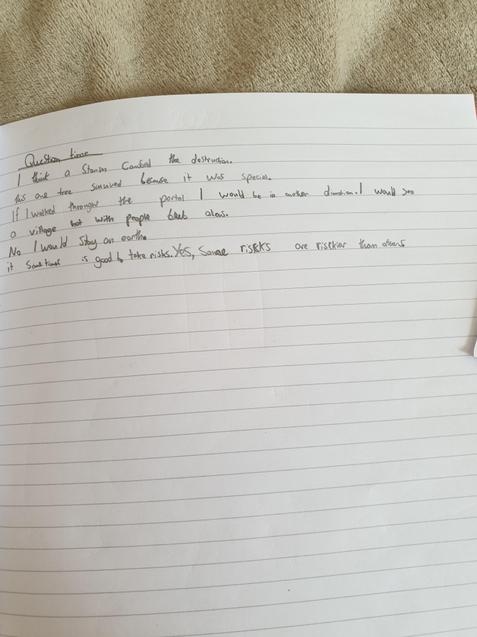 Question time
I think a Storm Caused the destruction.
this one tree survived because it was special.
If I walked through the portal I would be in another dimention. I would see
a village not with people but aliens.
No I would Stay on earth.
it Sometimes is good to take risks. Yes, Some risks are riskier than others